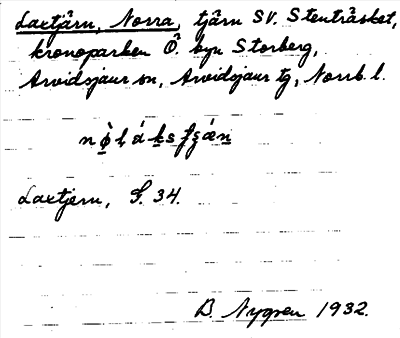 Laxtjärn, Norra, tjärn SV. Stenträsket,
kronoparken Ö. byn Storberg,
Arvidsjaur sn, Arvidsjaur tg, Norrb. l.
Laxtjern, G. 34.
B. Nygren 1932.